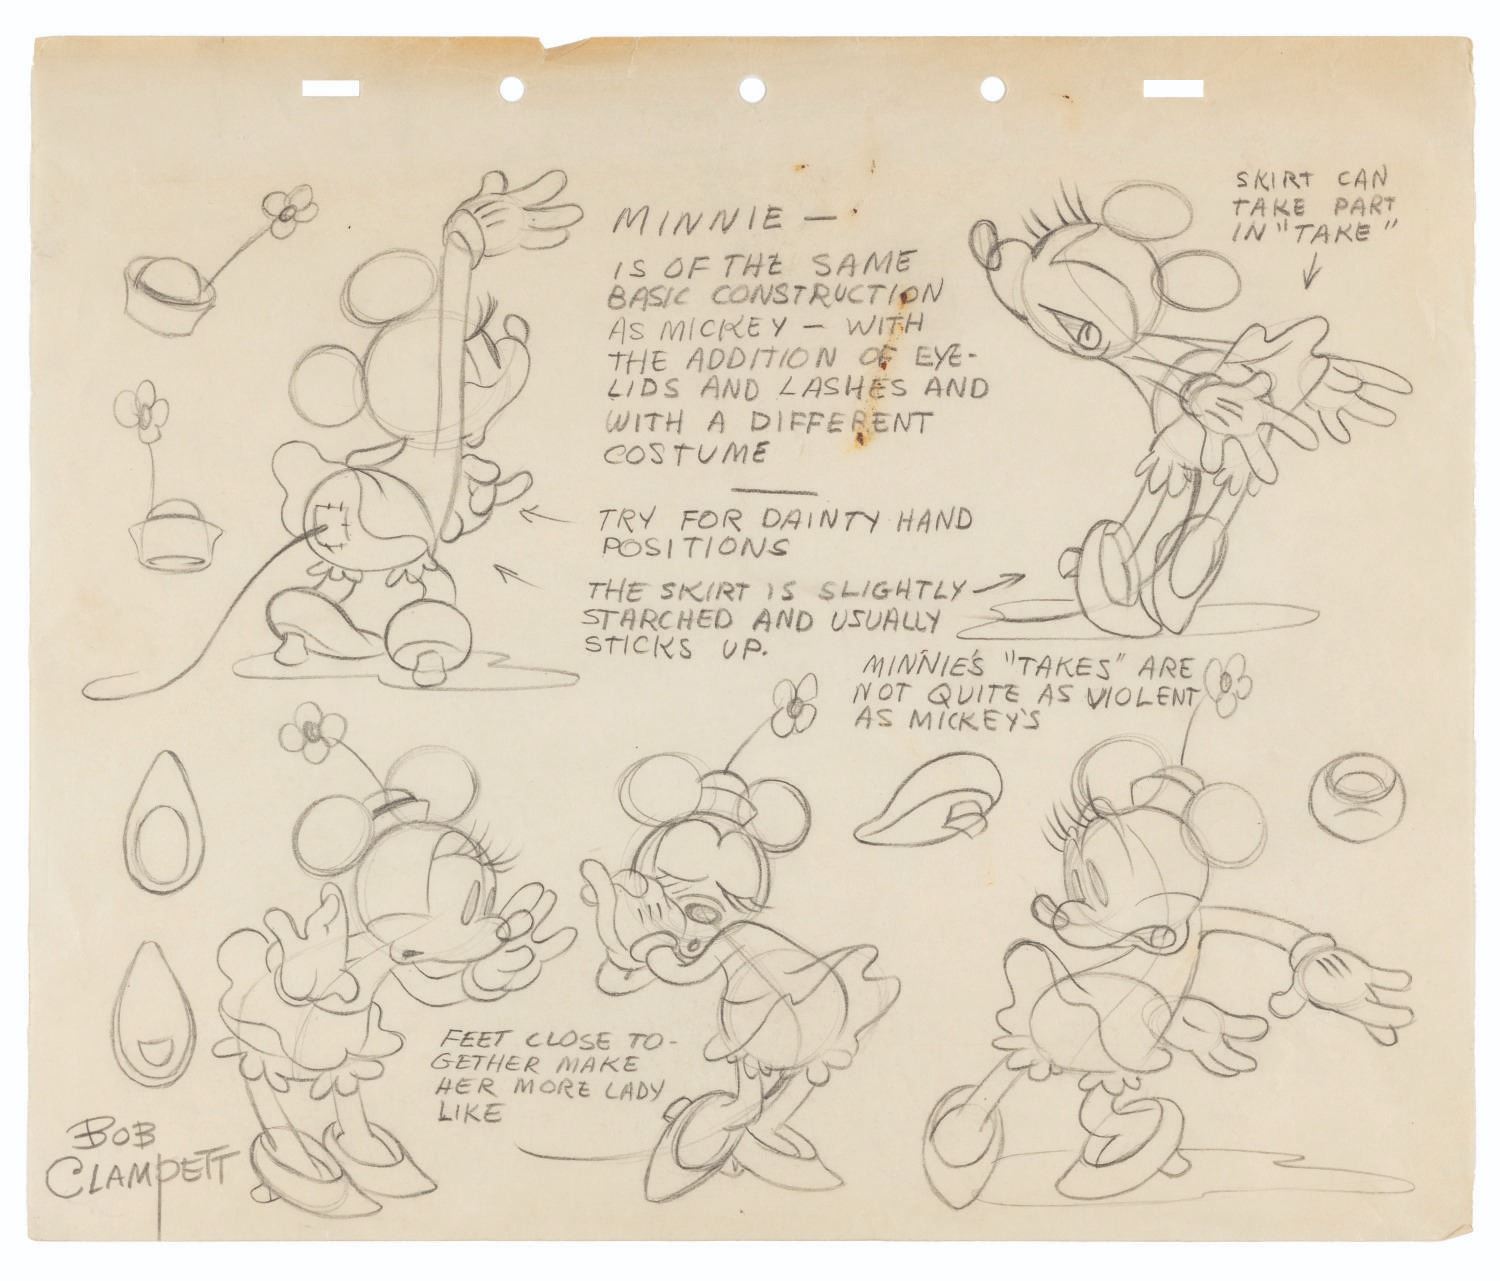 MINNIE —
IS OF THE SAME
BASIC CONSTRUCTION
AS MICKEY — WITH
THE ADDITION OF EYE-
LIDS AND LASHES AND
WITH A DIFFERENT
COSTUME
SKIRT CAN
TAKE PART
IN "TAKE"
TRY FOR DAINTY HAND
POSITIONS
THE SKIRT IS SLIGHTLY
STARCHED AND USUALLY
STICKS UP.
MINNIE'S "TAKES" ARE
NOT QUITE AS VIOLENT
AS MICKEY'S
FEET CLOSE TO-
GETHER MAKE
HER MORE LADY
LIKE
BOB
CLAMPETT